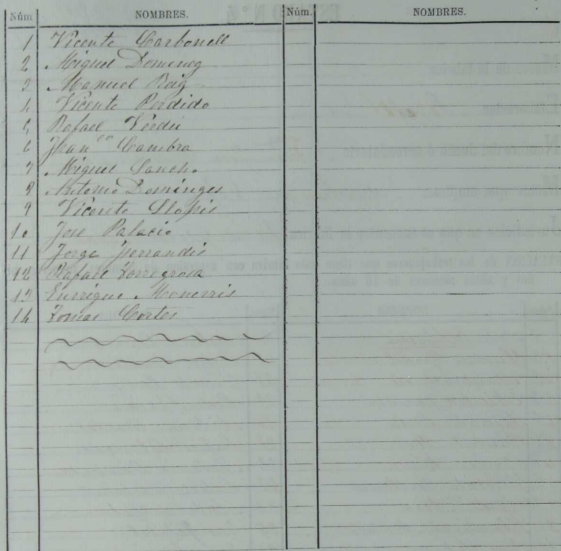 Núm NOMBRES. Núm. NOMBRES.
1 Vicente Carbonell
2 Miguel Domeneg
3 Manuel Paiz
4 Vicente Perdido
5 Rafael Verdú
6 Juan Cambra
7 Miguel Sancho
8 Antonio Dominges
9 Vicente Llopis
10 Jose Palacio
11 Jorge Ferrandis
12 Rafael Torregrosa
13 Enrrique Monerris
14 Tomas Cortes